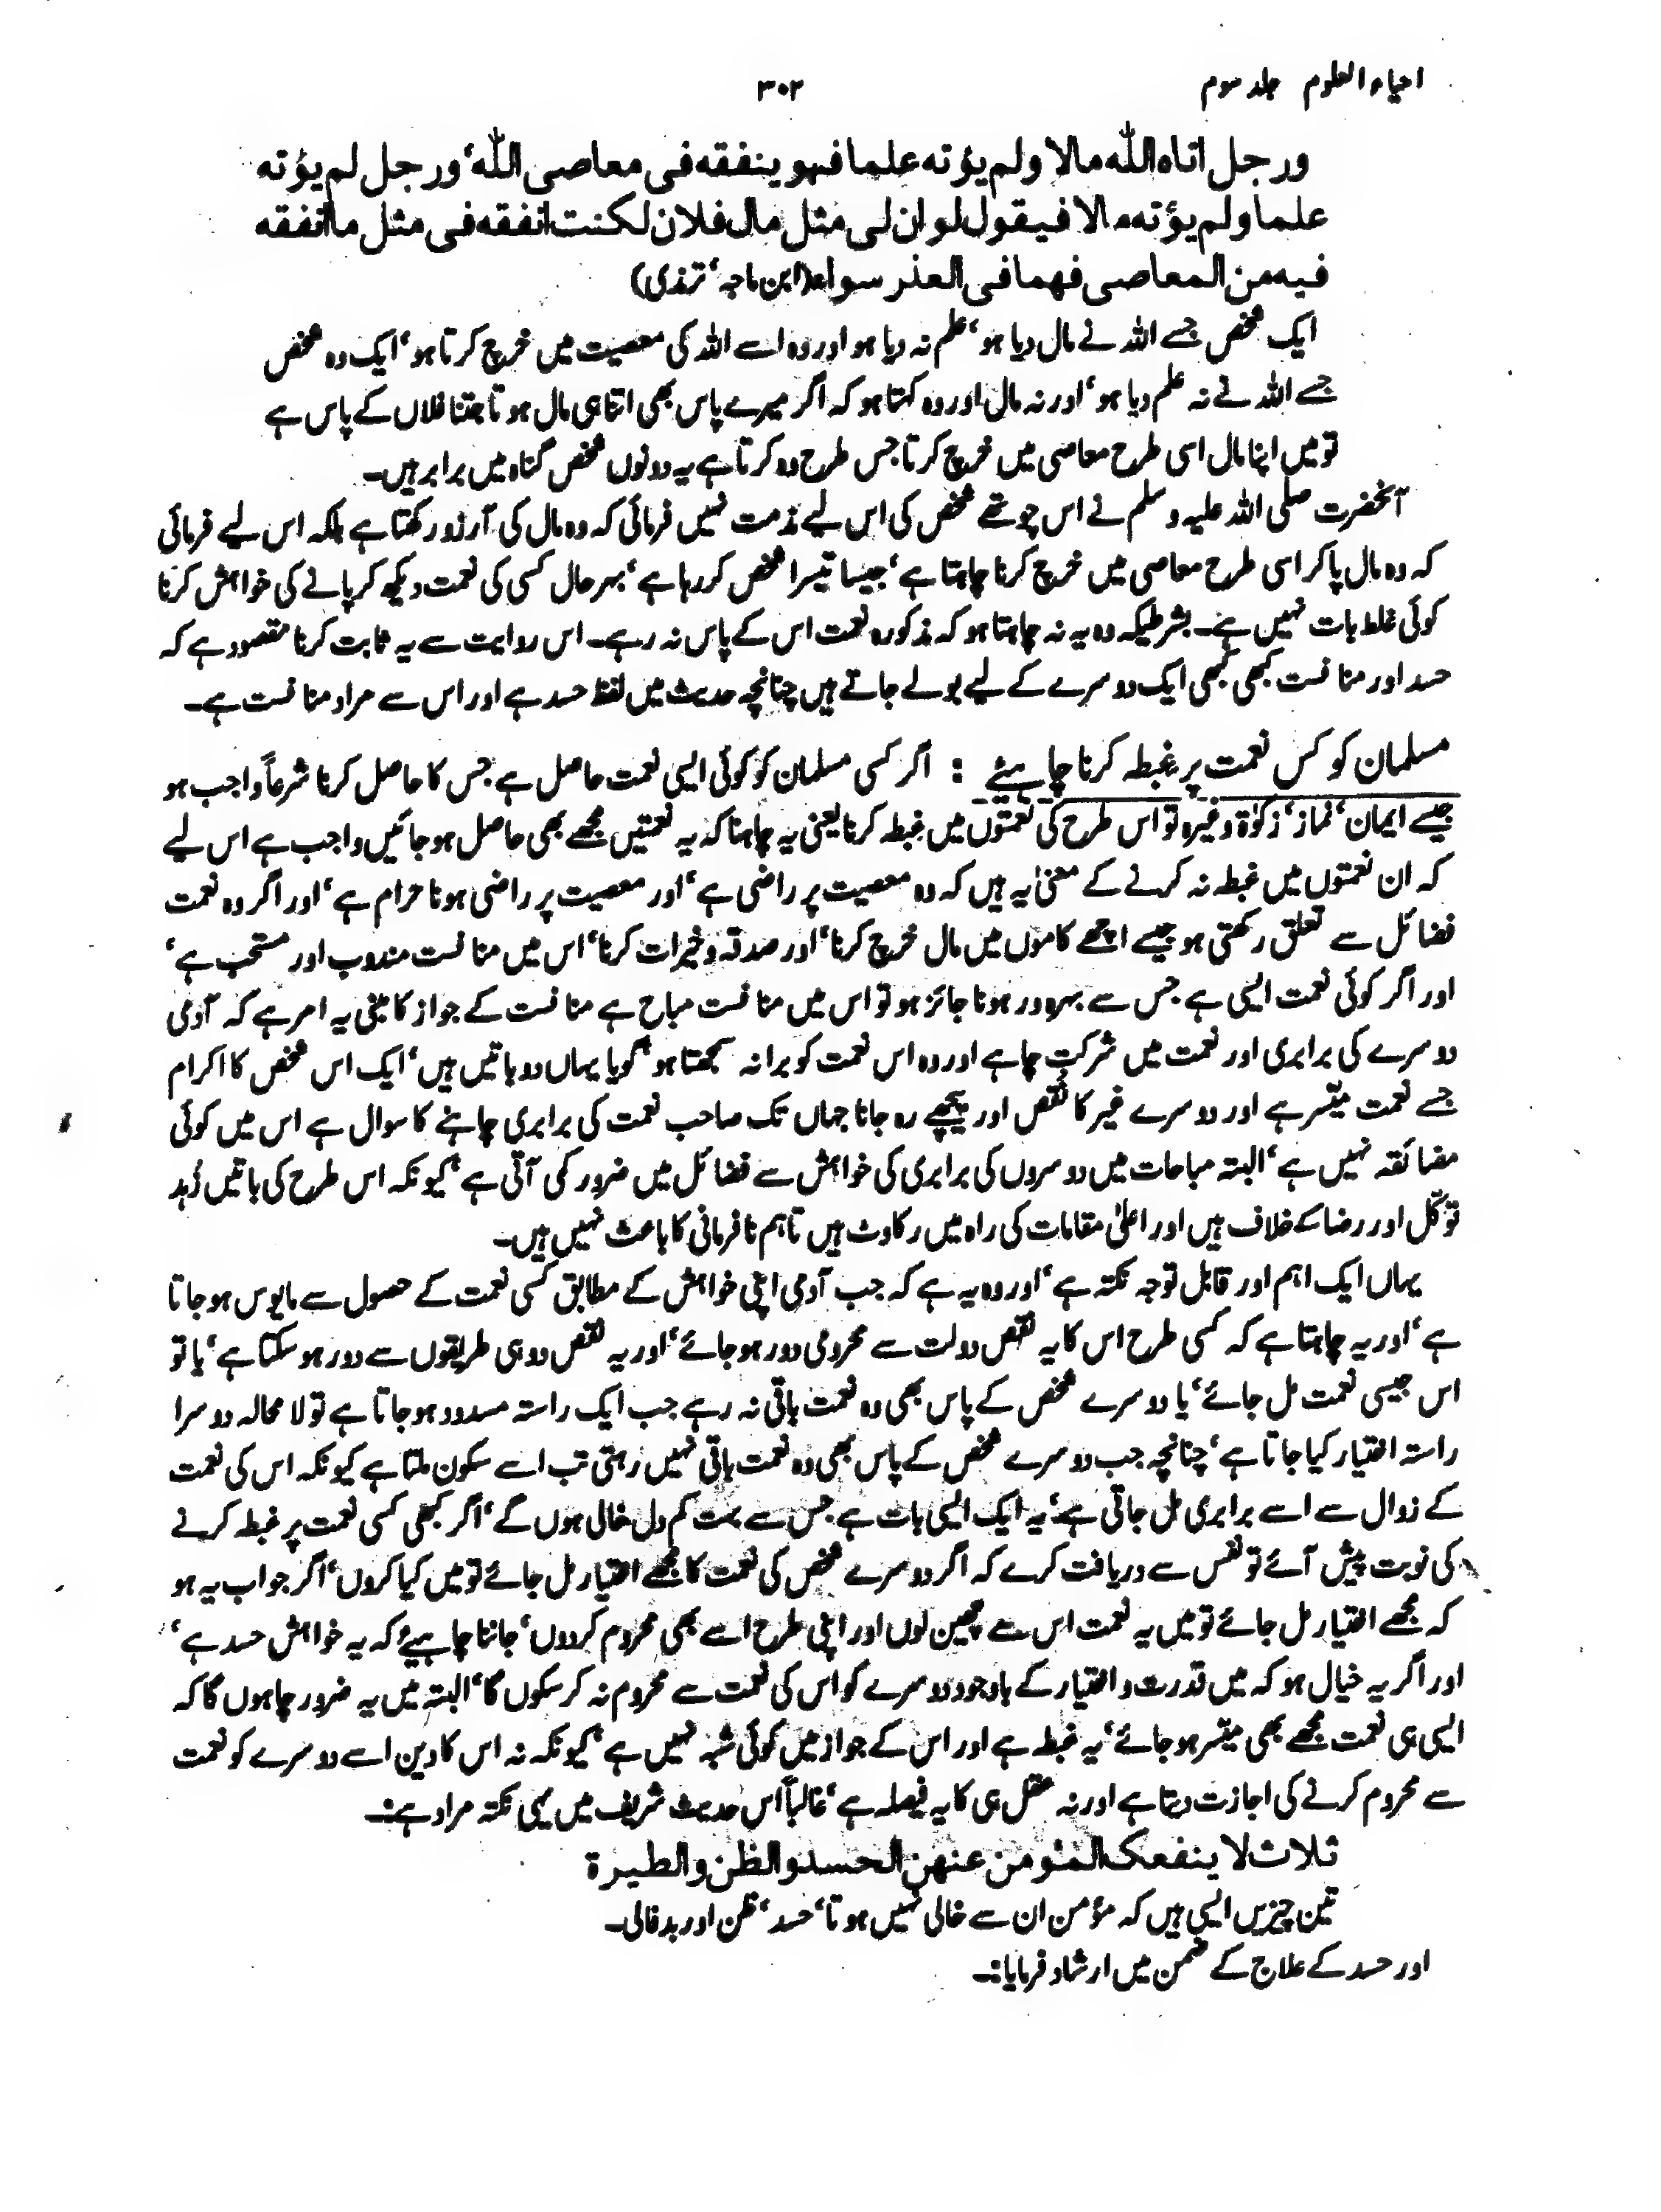 احیاء العلوم جلد سوم
۳۰۲
ورجل اتاه الله مالا ولم یؤته علما فهو ینفقه فی معاصی الله، ورجل لم یؤته
علما ولم یؤته مالا فیقول لو ان لی مثل مال فلان لکنت انفقه فی مثل ما انفقه
فیه من المعاصی فهما فی العذر سواء (ابن ماجہ، ترمذی)
ایک شخص جسے اللہ نے مال دیا ہو، علم نہ دیا ہو اور وہ اسے اللہ کی معصیت میں خرچ کرتا ہو، ایک وہ شخص
جسے اللہ نے نہ علم دیا ہو، اور نہ مال اور وہ کہتا ہو کہ اگر میرے پاس بھی اتنا ہی مال ہوتا جتنا فلاں کے پاس ہے
تو میں اپنا مال اسی طرح معاصی میں خرچ کرتا جس طرح وہ کرتا ہے یہ دونوں شخص گناہ میں برابر ہیں۔
آنحضرت صلی اللہ علیہ وسلم نے اس چوتھے شخص کی اس لیے مذمت نہیں فرمائی کہ وہ مال کی آرزو رکھتا ہے بلکہ اس لیے فرمائی
کہ وہ مال پا کر اسی طرح معاصی میں خرچ کرنا چاہتا ہے، جیسا تیسرا شخص کر رہا ہے، بہرحال کسی کی نعمت دیکھ کر پانے کی خواہش کرنا
کوئی غلط بات نہیں ہے۔ بشرطیکہ وہ یہ نہ چاہتا ہو کہ مذکورہ نعمت اس کے پاس نہ رہے۔ اس روایت سے یہ ثابت کرنا مقصود ہے کہ
حسد اور منافست کبھی کبھی ایک دوسرے کے لیے بولے جاتے ہیں چنانچہ حدیث میں لفظ حسد ہے اور اس سے مراد منافست ہے۔
مسلمان کو کس نعمت پر غبطہ کرنا چاہیئے : اگر کسی مسلمان کو کوئی ایسی نعمت حاصل ہے جس کا حاصل کرنا شرعاً واجب ہو
جیسے ایمان، نماز، زکوٰۃ وغیرہ تو اس طرح کی نعمتوں میں غبطہ کرنا یعنی یہ چاہنا کہ یہ نعمتیں مجھے بھی حاصل ہو جائیں واجب ہے اس لیے
کہ ان نعمتوں میں غبطہ نہ کرنے کے معنیٰ یہ ہیں کہ وہ معصیت پر راضی ہے، اور معصیت پر راضی ہونا حرام ہے، اور اگر وہ نعمت
فضائل سے تعلق رکھتی ہو جیسے اچھے کاموں میں مال خرچ کرنا، اور صدقہ و خیرات کرنا، اس میں منافست مندوب اور مستحب ہے،
اور اگر کوئی نعمت ایسی ہے جس سے بہرہ ور ہونا جائز ہو تو اس میں منافست مباح ہے منافست کے جواز کا مبنی یہ امر ہے کہ آدمی
دوسرے کی برابری اور نعمت میں شرکت چاہے اور وہ اس نعمت کو برا نہ سمجھتا ہو، گویا یہاں دو باتیں ہیں، ایک اس شخص کا اکرام
جسے نعمت میسر ہے اور دوسرے غیر کا نقص اور پیچھے رہ جانا جہاں تک صاحب نعمت کی برابری چاہنے کا سوال ہے اس میں کوئی
مضائقہ نہیں ہے، البتہ مباحات میں دوسروں کی برابری کی خواہش سے فضائل میں ضرور کمی آتی ہے، کیونکہ اس طرح کی باتیں زُہد
توکّل اور رضا کے خلاف ہیں اور اعلیٰ مقامات کی راہ میں رکاوٹ ہیں تاہم نافرمانی کا باعث نہیں ہیں۔
یہاں ایک اہم اور قابل توجہ نکتہ ہے، اور وہ یہ ہے کہ جب آدمی اپنی خواہش کے مطابق کسی نعمت کے حصول سے مایوس ہو جاتا
ہے، اور یہ چاہتا ہے کہ کسی طرح اس کا یہ نقص دولت سے محرومی دور ہو جائے، اور یہ نقص دو ہی طریقوں سے دور ہو سکتا ہے، یا تو
اس جیسی نعمت مل جائے، یا دوسرے شخص کے پاس بھی وہ نعمت باقی نہ رہے جب ایک راستہ مسدود ہو جاتا ہے تو لا محالہ دوسرا
راستہ اختیار کیا جاتا ہے، چنانچہ جب دوسرے شخص کے پاس بھی وہ نعمت باقی نہیں رہتی تب اسے سکون ملتا ہے کیونکہ اس کی نعمت
کے زوال سے اسے برابری مل جاتی ہے، یہ ایک ایسی بات ہے جس سے بہت کم دل خالی ہوں گے، اگر کبھی کسی نعمت پر غبطہ کرنے
کی نوبت پیش آئے تو نفس سے دریافت کرے کہ اگر دوسرے شخص کی نعمت کا مجھے اختیار مل جائے تو میں کیا کروں، اگر جواب یہ ہو
کہ مجھے اختیار مل جائے تو میں یہ نعمت اس سے چھین لوں اور اپنی طرح اسے بھی محروم کردوں، جاننا چاہیئے کہ یہ خواہش حسد ہے،
اور اگر یہ خیال ہو کہ میں قدرت و اختیار کے باوجود دوسرے کو اس کی نعمت سے محروم نہ کر سکوں گا، البتہ میں یہ ضرور چاہوں گا کہ
ایسی ہی نعمت مجھے بھی میسّر ہو جائے، یہ غبطہ ہے اور اس کے جواز میں کوئی شبہ نہیں ہے، کیونکہ نہ اس کا دین اسے دوسرے کو نعمت
سے محروم کرنے کی اجازت دیتا ہے اور نہ عقل ہی کا یہ فیصلہ ہے، غالباً اس حدیث شریف میں یہی نکتہ مراد ہے:۔
ثلاث لا ینفعک المئومن عنهن الحسد والظن والطیرة
تین چیزیں ایسی ہیں کہ مؤمن ان سے خالی نہیں ہوتا، حسد، ظن اور بدفالی۔
اور حسد کے علاج کے ضمن میں ارشاد فرمایا:۔